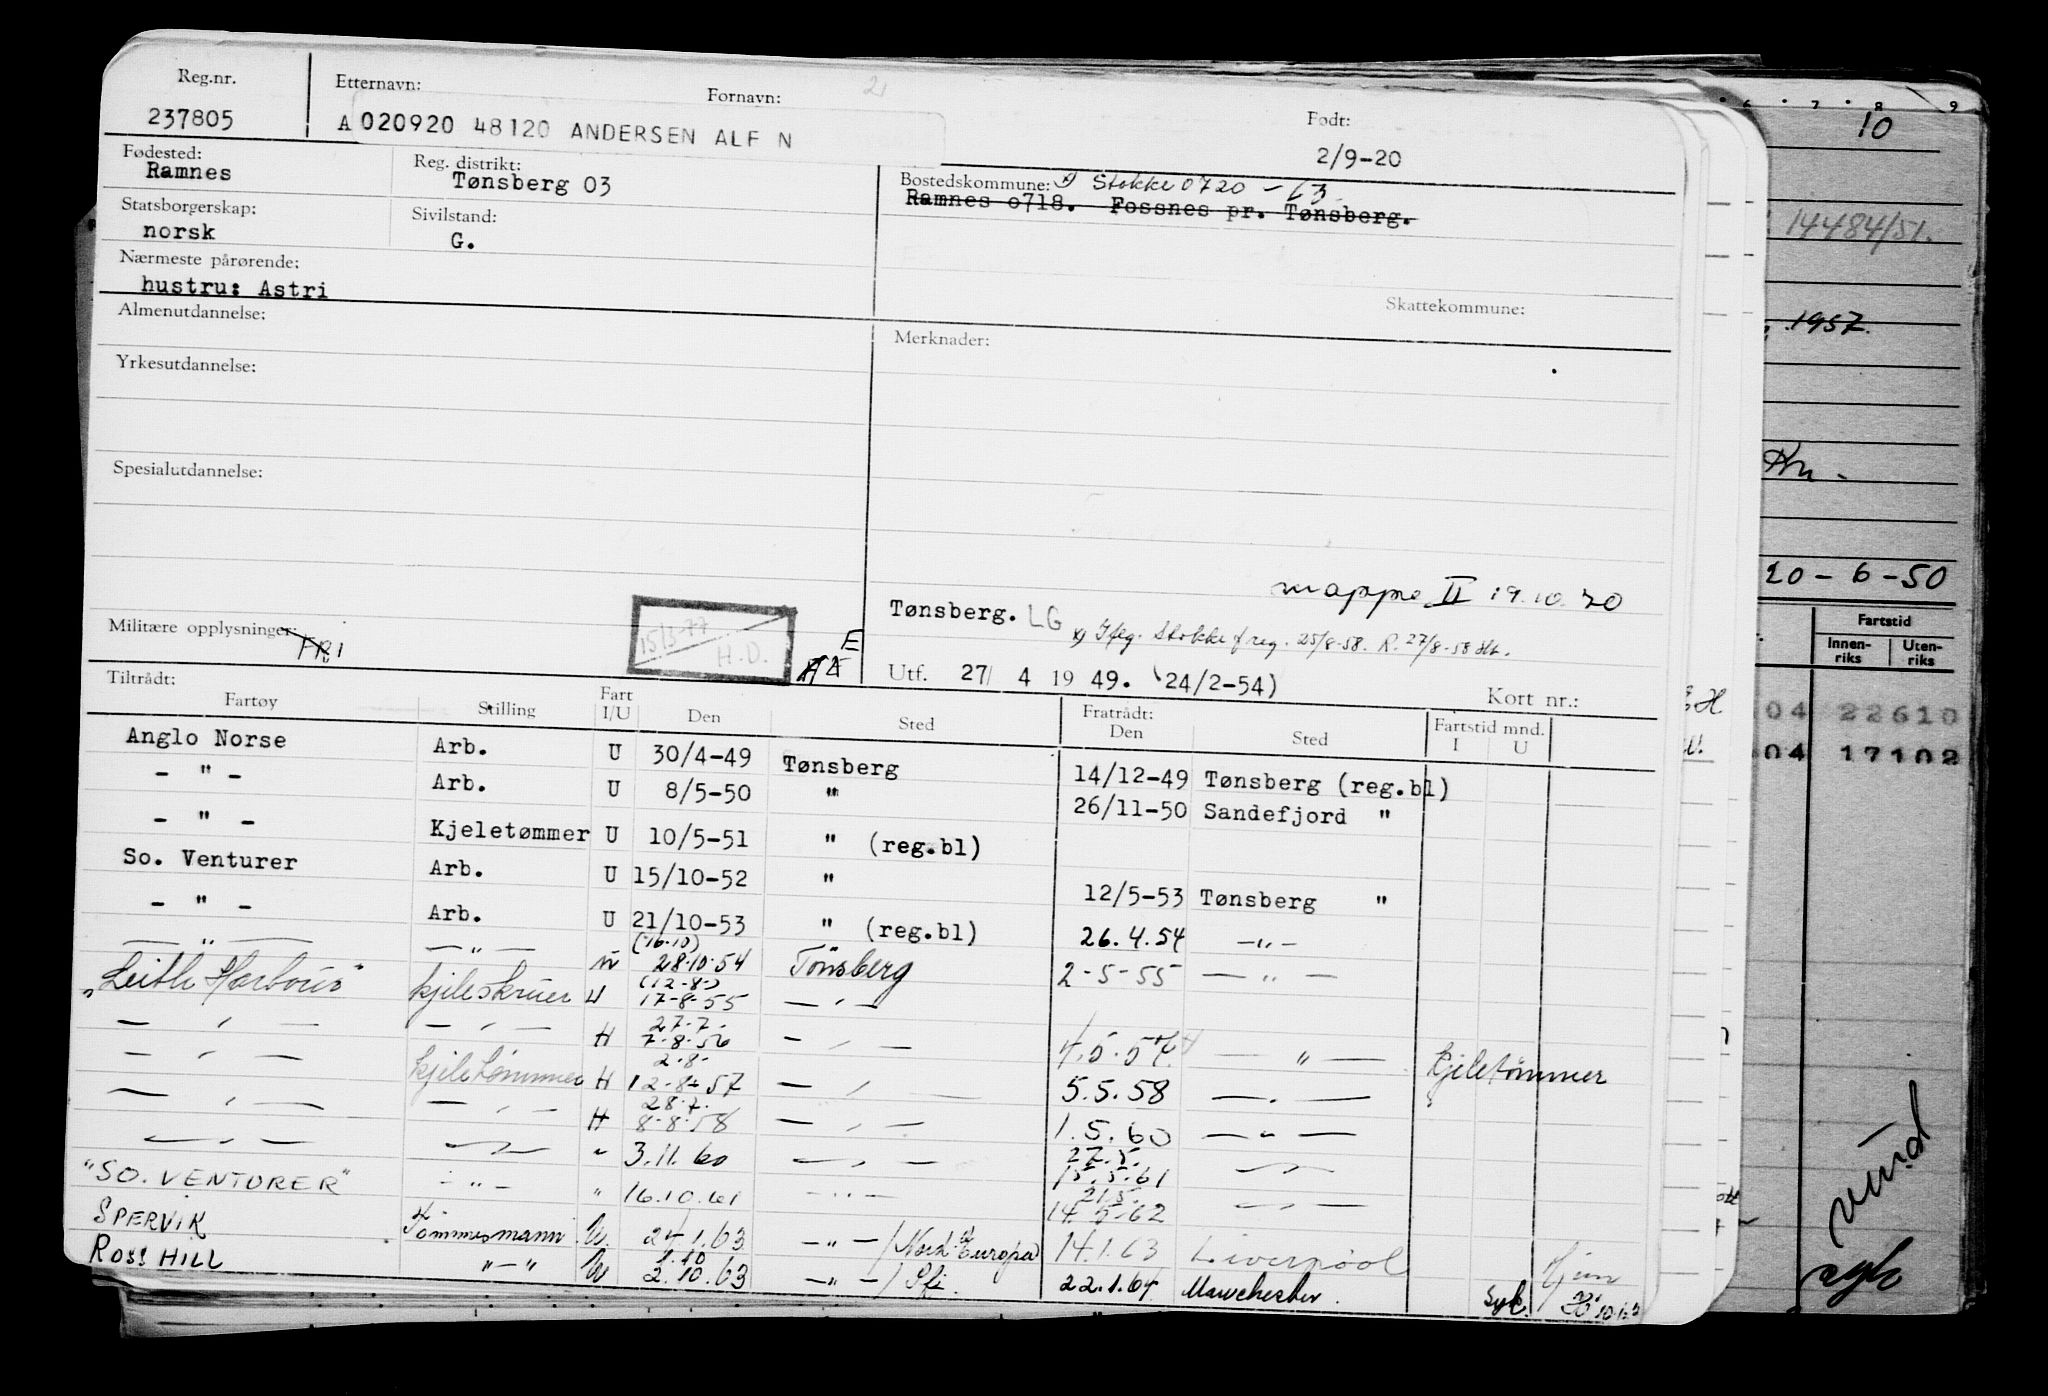 Reg.nr. Etternavn: Fornavn: Født:
237805 A 020920 48120 ANDERSEN ALF N 2/9-20
Fødested: Reg. distrikt: Bostedskommune: x) Stokke 0720 - 63.
Ramnes Tønsberg 03 Ramnes o718. Fossnes pr. Tønsberg.
Statsborgerskap: Sivilstand:
norsk G.
Nærmeste pårørende:
hustru: Astri Skattekommune:
Almenutdannelse: Merknader:
Yrkesutdannelse:
Spesialutdannelse:
mappe II 19.10.70
Tønsberg. LG
Militære opplysninger: FRI 15/3-77 H.D. E
x) Ifly. Stokke f reg. 25/8-58. R. 27/8-58
Utf. 27/ 4 19 49. (24/2-54)
Tiltrådt: Kort nr.:
Fartøy Stilling Fart I/U Den Sted Fratrådt: Den Sted Fartstid mnd. I U
Anglo Norse Arb. U 30/4-49 Tønsberg 14/12-49 Tønsberg (reg.bl)
- " - Arb. U 8/5-50 " 26/11-50 Sandefjord "
- " - Kjeletømmer U 10/5-51 " (reg.bl)
So. Venturer Arb. U 15/10-52 " 12/5-53 Tønsberg "
- " - Arb. U 21/10-53 " (reg.bl) 26.4.54 - " -
- " - - " - (16.10) 28.10.54 Tönsberg 2-5-55 - " -
"Leith Harbour" kjeleskruer U (12-8-) 17-8-55 - " -
- " - - " - H 27.7. 7-8-56 - " - 4.5.57 - " - kjeletømmer
- " - kjeletømmer H 2-8- 12-8-57 - " - 5.5.58 - " -
- " - - " - H 28.7. 8-8-58 - " - 1.5.60 - " -
- " - - " - " 3.11.60 - " - 27.5. 15.5.61 - " -
"SO. VENTURER" - " - " 16.10.61 - " - 21.5. 14.5.62 - " -
SPERVIK Tömmermann U. 24.1.63 - " - / Nord Europa 14.1.63 Liverpool Hjem
ROSS HILL " - " U 1.10 2.10.63 - " - / 22.1.64 Manchester. Syk.
6 7 8 9
10
14484/51.
1957.
20-6-50
Fartstid
Innen-riks Uten-riks
04 22610
04 17102